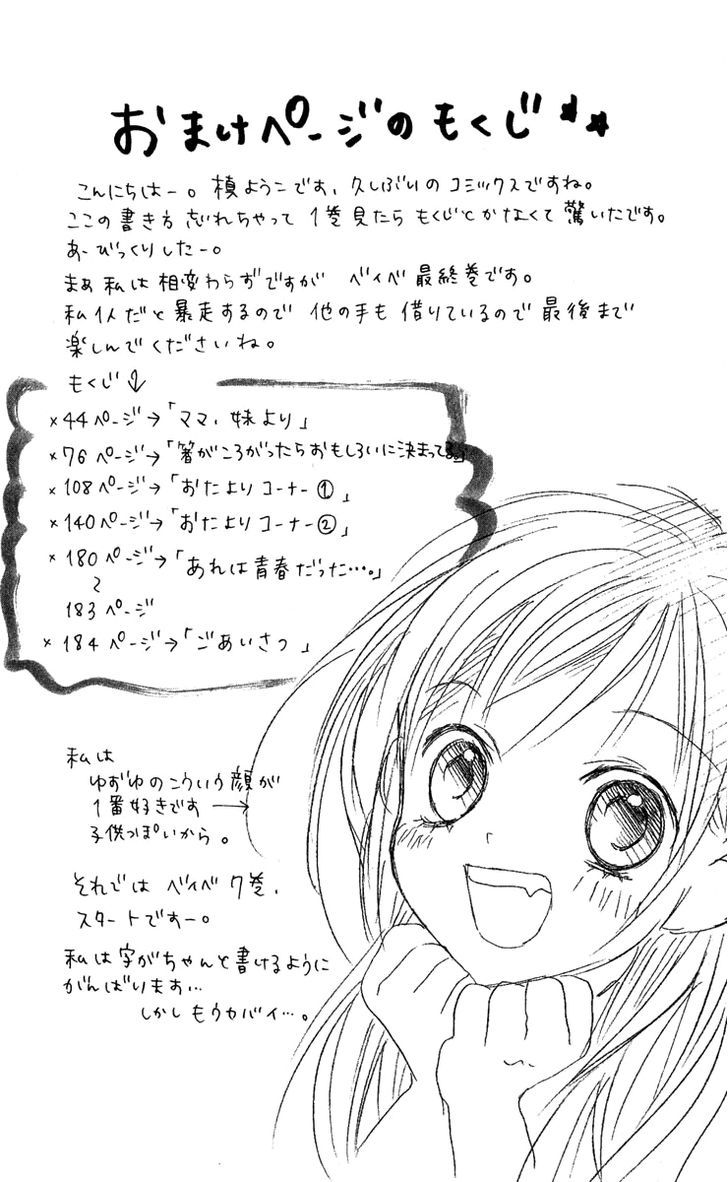 おまけページのもくじ**
こんにちはー。槙ようこです、久しぶりのコミックスですね。
ここの書き方忘れちゃって1巻見たらもくじとかなくて驚いたです。
あーびっくりしたー。
まぁ私は相変わらずですが ベイベ最終巻です。
私1人だと暴走するので 他の手も借りているので最後まで
楽しんでくださいね。
もくじ↓
×44ページ→「ママ、妹より」
×76ページ→「箸がころがったらおもしろいに決まってる。」
×108ページ→「おたよりコーナー①」
×140ページ→「おたよりコーナー②」
×180ページ→「あれは青春だった…。」
〜
183ページ
×184ページ→「ごあいさつ」
私は
ゆずゆのこういう顔が
1番好きです→
子供っぽいから。
それでは ベイベ7巻、
スタートですー。
私は字がちゃんと書けるように
がんばります…
しかしもうヤバイ…。